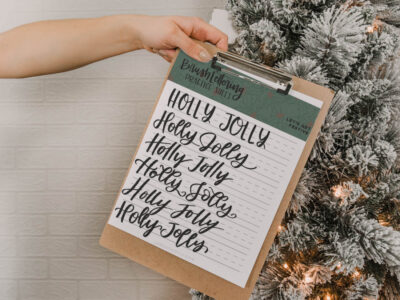 Brush Lettering
PRACTICE SHEET
LET'S GET
FESTIVE
HOLLY JOLLY
Holly Jolly
Holly Jolly
Holly Jolly
Holly Jolly
Holly Jolly